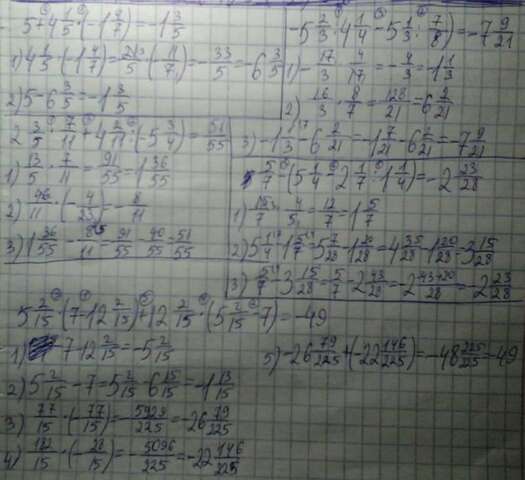 5+4 1/5·(-1 4/7)=-1 3/5
1) 4 1/5·(-1 4/7)=21/5·(-11/7)=-33/5=6 3/5
2) 5-6 3/5=-1 3/5
-5 2/3:4 1/4-5 1/3:7/8)=-7 9/21
1) -17/3·4/17=-4/3=-1 1/3
2) 16/3·8/7=128/21=6 2/21
3) -1 1/3-6 2/21=-1 7/21-6 2/21=-7 9/21
2 3/5·7/11+4 2/11:(-5 3/4)=51/55
1) 13/5·7/11=91/55=1 36/55
2) 46/11·(-4/23)=-8/11
3) 1 36/55-8/11=91/55-40/55=51/55
5/7-(5 1/4-2 1/7:1 1/4)=-2 23/28
1) 15/7·4/5=12/7=1 5/7
2) 5 1/4-1 5/7=5 7/28-1 20/28=4 35/28-1 20/28=3 15/28
3) 5/7-3 15/28=5/7-2 43/28=-2 -43+20/28=-2 23/28
5 2/15·(7-12 2/15)+12 2/15·(5 2/15-7)=-49
1) 7-12 2/15=-5 2/15
2) 5 2/15-7=5 2/15-6 15/15=-1 13/15
3) 77/15·(-77/15)=-5929/225=-26 79/225
4) 182/15·(-28/15)=-5096/225=-22 146/225
5) -26 79/225+(-22 146/225)=-48 225/225=-49